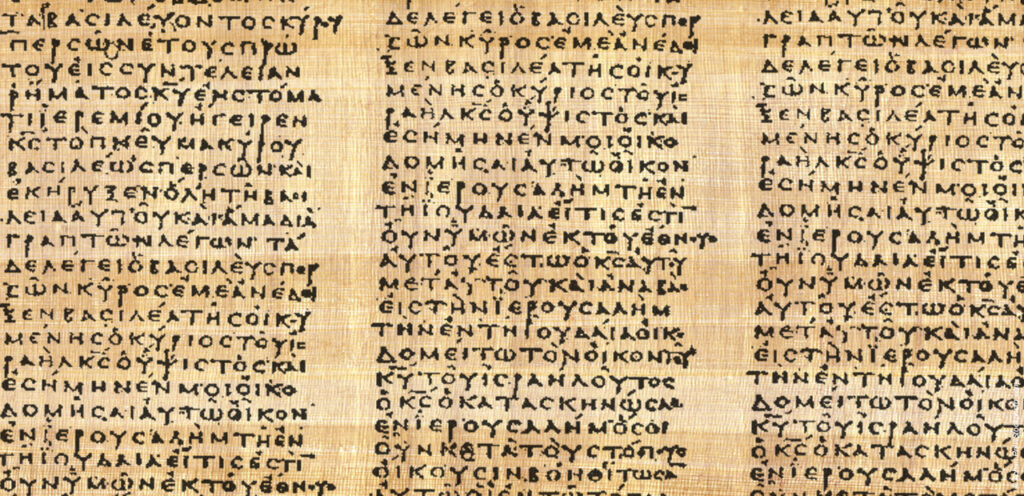 ΤΑΒΑϹΙΛΕΥΟΝΤΟϹΚΥΡΟΥ
ΠΕΡϹΩΝΕΤΟΥϹΠΡΩ
ΤΟΥΕΙϹϹΥΝΤΕΛΕΙΑΝ
ΡΗΜΑΤΟϹΚΥΕΝϹΤΟΜΑ
ΤΙΙΕΡΕΜΙΟΥΗΓΕΙΡΕΝ
ΚϹΤΟΠΝΕΥΜΑΚΥΡΟΥ
ΒΑϹΙΛΕΩϹΠΕΡϹΩΝΚΑΙ
ΕΚΗΡΥΞΕΝΟΛΗΤΗΒΑϹΙ
ΛΕΙΑΑΥΤΟΥΚΑΙΑΜΑΔΙΑ
ΓΡΑΠΤΩΝΛΕΓΩΝΤΑ
ΔΕΛΕΓΕΙΟΒΑϹΙΛΕΥϹΠΕΡ
ϹΩΝΚΥΡΟϹΕΜΕΑΝΕΔΙ
ΞΕΝΒΑϹΙΛΕΑΤΗϹΟΙΚΥ
ΜΕΝΗϹΟΚΥΡΙΟϹΤΟΥΙϹ
ΡΑΗΛΚϹΟΥΨΙϹΤΟϹΚΑΙ
ΕϹΗΜΗΝΕΝΜΟΙΟΙΚΟ
ΔΟΜΗϹΑΙΑΥΤΩΟΙΚΟΝ
ΕΝΪΕΡΟΥϹΑΛΗΜΤΗΕΝ
ΤΗΙΟΥΔΑΙΑΕΙΤΙϹΕϹΤΙ
ΟΥΝΥΜΩΝΕΚΤΟΥΕΘΝΟΥϹ
ΔΕΛΕΓΕΙΟΒΑϹΙΛΕΥϹΠΕΡ
ϹΩΝΚΥΡΟϹΕΜΕΑΝΕΔΙ
ΞΕΝΒΑϹΙΛΕΑΤΗϹΟΙΚΥ
ΜΕΝΗϹΟΚΥΡΙΟϹΤΟΥΙϹ
ΡΑΗΛΚϹΟΥΨΙϹΤΟϹΚΑΙ
ΕϹΗΜΗΝΕΝΜΟΙΟΙΚΟ
ΔΟΜΗϹΑΙΑΥΤΩΟΙΚΟΝ
ΕΝΪΕΡΟΥϹΑΛΗΜΤΗΕΝ
ΤΗΙΟΥΔΑΙΑΕΙΤΙϹΕϹΤΙ
ΟΥΝΥΜΩΝΕΚΤΟΥΕΘΝΟΥϹ
ΑΥΤΟΥΕϹΤΩΟΚϹΑΥΤΥ
ΜΕΤΑΥΤΟΥΚΑΙΑΝΑΒΑϹ
ΕΙϹΤΗΝΪΕΡΟΥϹΑΛΗΜ
ΤΗΝΕΝΤΗΙΟΥΔΑΙΑΟΙΚΟ
ΔΟΜΕΙΤΩΤΟΝΟΙΚΟΝΤΟΥ
ΚΥΤΟΥΙϹΡΑΗΛΟΥΤΟϹ
ΟΚϹΟΚΑΤΑϹΚΗΝΩϹΑϹ
ΕΝΪΕΡΟΥϹΑΛΗΜΟϹΟΙ
ΟΥΝΚΑΤΑΤΟΥϹΤΟΠΟΥϹ
ΟΙΚΟΥϹΙΝΒΟΗΘΙΤΩϹΑ
ΛΕΙΑΑΥΤΟΥΚΑΙΑΜΑ
ΓΡΑΠΤΩΝΛΕΓΩΝ
ΔΕΛΕΓΕΙΟΒΑϹΙΛΕΥϹ
ϹΩΝΚΥΡΟϹΕΜΕΑΝ
ΞΕΝΒΑϹΙΛΕΑΤΗϹΟΙ
ΜΕΝΗϹΟΚΥΡΙΟϹΤΟ
ΡΑΗΛΚϹΟΥΨΙϹΤΟϹ
ΕϹΗΜΗΝΕΝΜΟΙΟΙ
ΔΟΜΗϹΑΙΑΥΤΩΟΙΚ
ΕΝΪΕΡΟΥϹΑΛΗΜΤΗ
ΤΗΙΟΥΔΑΙΑΕΙΤΙϹΕ
ΟΥΝΥΜΩΝΕΚΤΟΥΕ
ΑΥΤΟΥΕϹΤΩΟΚϹΑ
ΜΕΤΑΥΤΟΥΚΑΙΑΝΑ
ΕΙϹΤΗΝΪΕΡΟΥϹΑΛΗ
ΤΗΝΕΝΤΗΙΟΥΔΑΙΑ
ΔΟΜΕΙΤΩΤΟΝΟΙΚΟ
ΚΥΤΟΥΙϹΡΑΗΛΟΥΤ
ΟΚϹΟΚΑΤΑϹΚΗΝΩ
ΕΝΪΕΡΟΥϹΑΛΗΜΟϹ